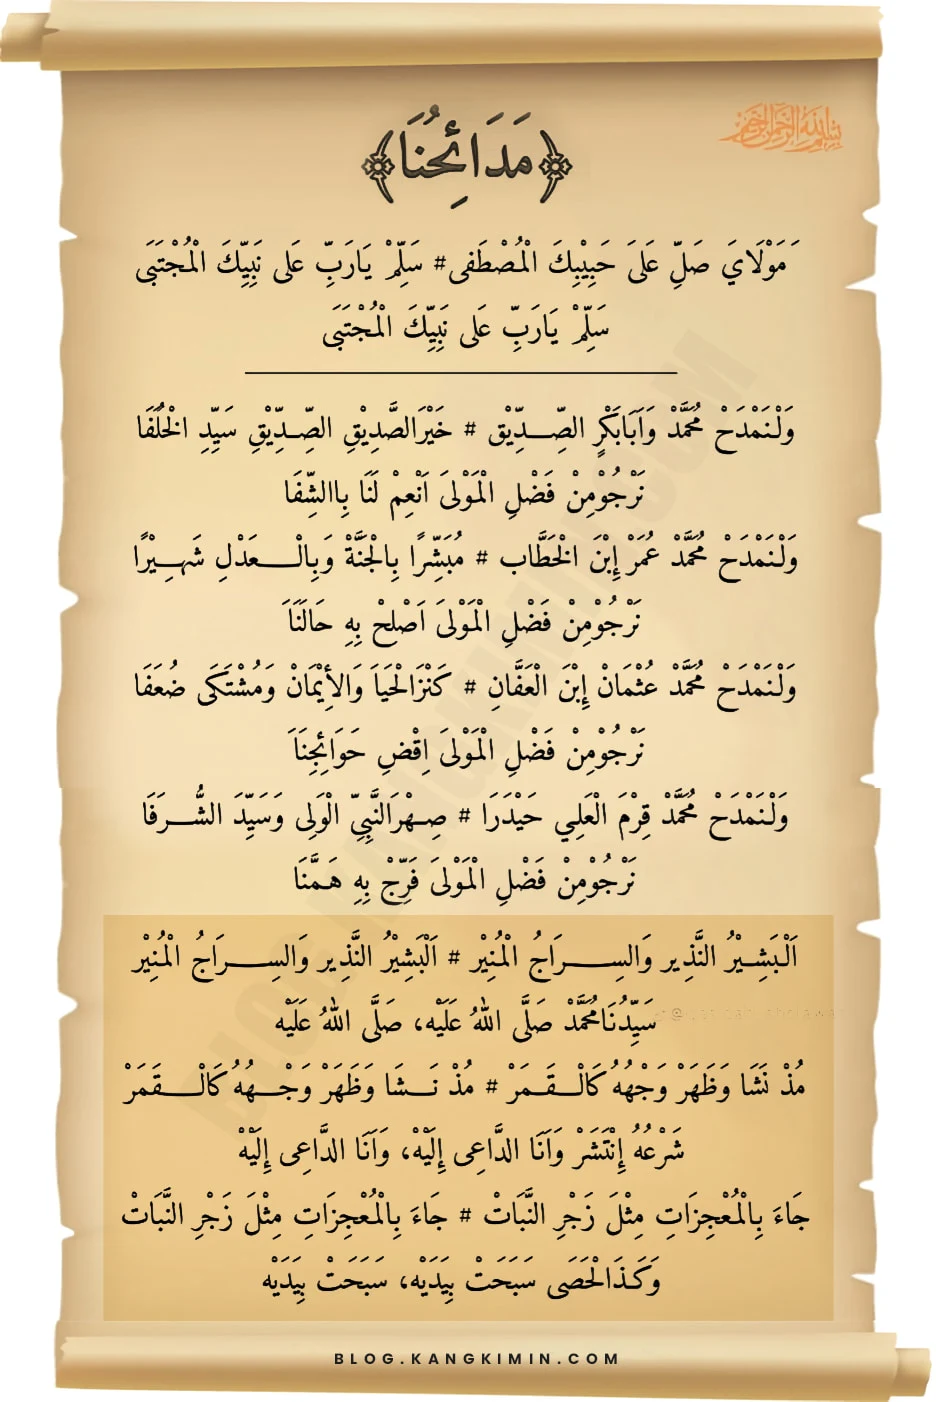 بسم الله الرحمن الرحيم
مَدَائِحُنَا
مَوْلَايَ صَلِّ عَلَىَ حَبِيْبِكَ الْمُصْطَفى# سَلِّمْ يَارَبِّ عَلى نَبِيِّكَ الْمُجْتَبَى
سَلِّمْ يَارَبِّ عَلى نَبِيِّكَ الْمُجْتَبَى
وَلْنَمْدَحْ مُحَمَّدْ وَاَبَابَكْرٍ الصِّـــدِّيْق # خَيْرَالصَّدِيْقِ الصِّـدِّيْقِ سَيِّدِ الْخُلَفَا
نَرْجُوْمِنْ فَضْلِ الْمَوْلىَ اَنْعِمْ لَنَا بِاالشِّفَا
وَلْنَمْدَحْ مُحَمَّدْ عُمَرْ إِبْنَ الْخَطَّاب # مُبَشِّرًا بِالْجَنَّةْ وَبِالْـــــعَدْلِ شَهِـــيْرًا
نَرْجُوْمِنْ فَضْلِ الْمَوْلىَ اَصْلِحْ بِهِ حَالَنَاَ
وَلْنَمْدَحْ مُحَمَّدْ عُثْمَانْ إِبْنَ الْعَفَّانِ # كَنْزَالْحَيَاَ وَالأِيْمَانْ وَمُشْتَكَى ضُعَفَا
نَرْجُوْمِنْ فَضْلِ الْمَوْلىَ اِقْضِ حَوَائِجِنَاَ
وَلْنَمْدَحْ مُحَمَّدْ قِرْمَ الْعَلِي حَيْدَرَا # صِـهْرَالنَّبِيِّ الْوَلِى وَسَيِّدَ الشُّـــرَفَا
نَرْجُوْمِنْ فَضْلِ الْمَوْلىَ فَرِّجْ بِهِ هَـمَّنَا
اَلْبَشِـيْرُ النَّذِير وَالسِــــــرَاجُ الْمُنِيْر # اَلْبَشِيْرُ النَّذِير وَالسِـــــرَاجُ الْمُنِيْر
سَيِّدُنَامُحَمَّدْ صَلَّى اللهُ عَلَيْه، صَلَّى اللهُ عَلَيْه
مُذْ نَشَا وَظَهَرْ وَجْهُهُ كَالْـــقَــمَرْ # مُذْ نَـــشَا وَظَهَرْ وَجْـــهُهُ كَالْـــــقَمَرْ
شَرْعُهُ إِنْتَشَرْ وَاَنَا الدَّاعِى إِلَيْهْ، وَاَنَا الدَّاعِى إِلَيْهْ
جَاءَ بِالْمُعْجِزَاتِ مِثْلَ زَجْرِ النَّبَاتْ # جَاءَ بِالْمُعْجِزَاتِ مِثْلَ زَجْرِ النَّبَاتْ
وَكَـذَالْحَصَى سَبَحَتْ بِيَدَيْه، سَبَحَتْ بِيَدَيْه
BLOG.KANGKIMIN.COM
BLOG.KANGKIMIN.COM